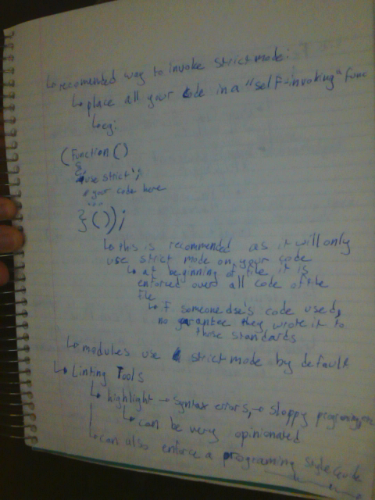 ↳ recomended way to invoke strict mode:
↳ place all your code in a "self-invoking" func
↳ eg:
(Function()
{
'use strict';
// your code here
...
}());
↳ this is recommended as it will only
use strict mode on your code
↳ at beginning of file it is
enforced over all code of the
file
↳ if someone else's code used,
no guarantee they wrote it to
those standards
↳ modules use strict mode by default
↳ Linting Tools
↳ highlight → syntax errors, → sloppy programming
↳ can be very opinionated
↳ can also enforce a programing style